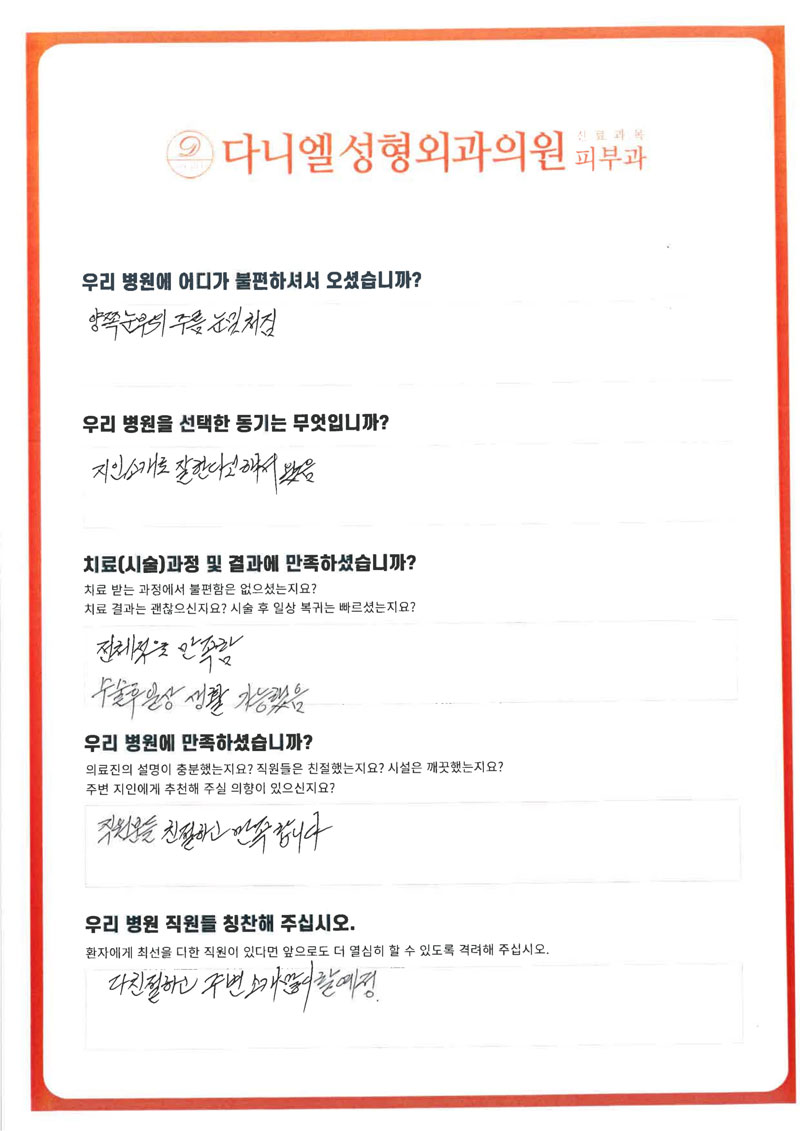 다니엘성형외과의원 진료과목 피부과
우리 병원에 어디가 불편하셔서 오셨습니까?
양쪽눈위의 주름 눈깃처짐
우리 병원을 선택한 동기는 무엇입니까?
지인소개로 잘한다고해서 왔음
치료(시술)과정 및 결과에 만족하셨습니까?
치료 받는 과정에서 불편함은 없으셨는지요?
치료 결과는 괜찮으신지요? 시술 후 일상 복귀는 빠르셨는지요?
전체적으로 만족함
수술후일상 생활 가능했음
우리 병원에 만족하셨습니까?
의료진의 설명이 충분했는지요? 직원들은 친절했는지요? 시설은 깨끗했는지요?
주변 지인에게 추천해 주실 의향이 있으신지요?
직원분들 친절하고 만족합니다
우리 병원 직원들 칭찬해 주십시오.
환자에게 최선을 다한 직원이 있다면 앞으로도 더 열심히 할 수 있도록 격려해 주십시오.
다친절하고 주변 소개많이할예정.